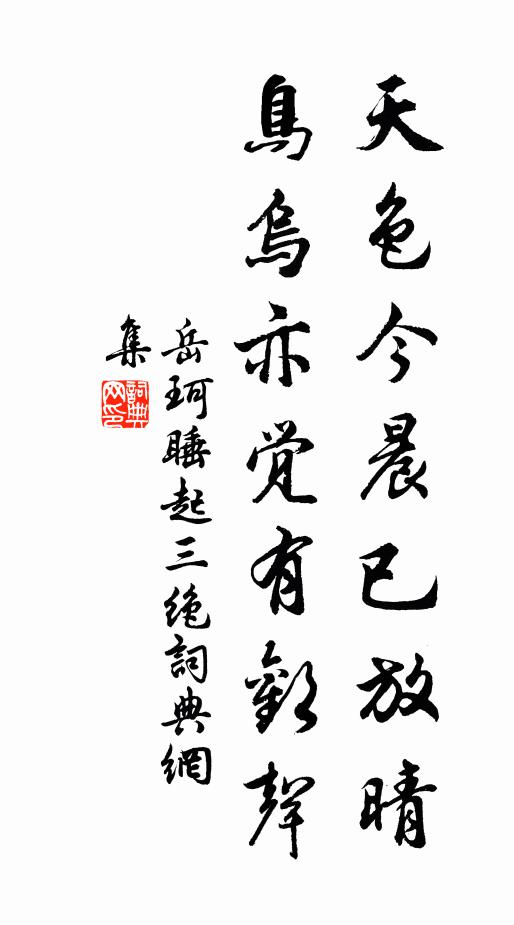 天色今晨已放晴
鳥烏亦覺有歡聲
岳珂睡起三絶詞典網
集
詞典
网印